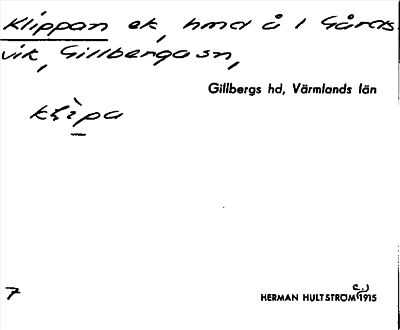 Klippan ek, hmd å 1 Gårds-
vik, Gillbergasn,
Gillbergs hd, Värmlands län
klìpa
7
HERMAN HULTSTRÖM 1915